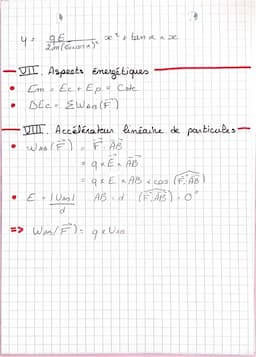 y = qE / 2m(v₀cosα)² x² + tan α × x
VII. Aspects énergétiques
• Em = Ec + Ep = Cste
• ΔEc = ΣWAB(F⃗)
VIII. Accélérateur linéaire de particules
• WAB(F⃗) = F⃗ . AB⃗
= q × E⃗ × AB⃗
= q × E × AB × cos (F⃗, AB⃗)
• E = |UAB| / d AB = d (F⃗, AB⃗) = 0°
=> WAB(F⃗) = q × UAB